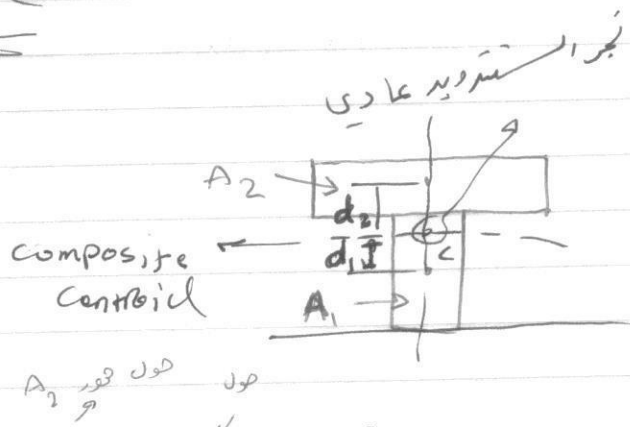 نجد السنترويد عادي
A2
d2
composite
d1
c
Centroid
A1
حول محور A2
حول